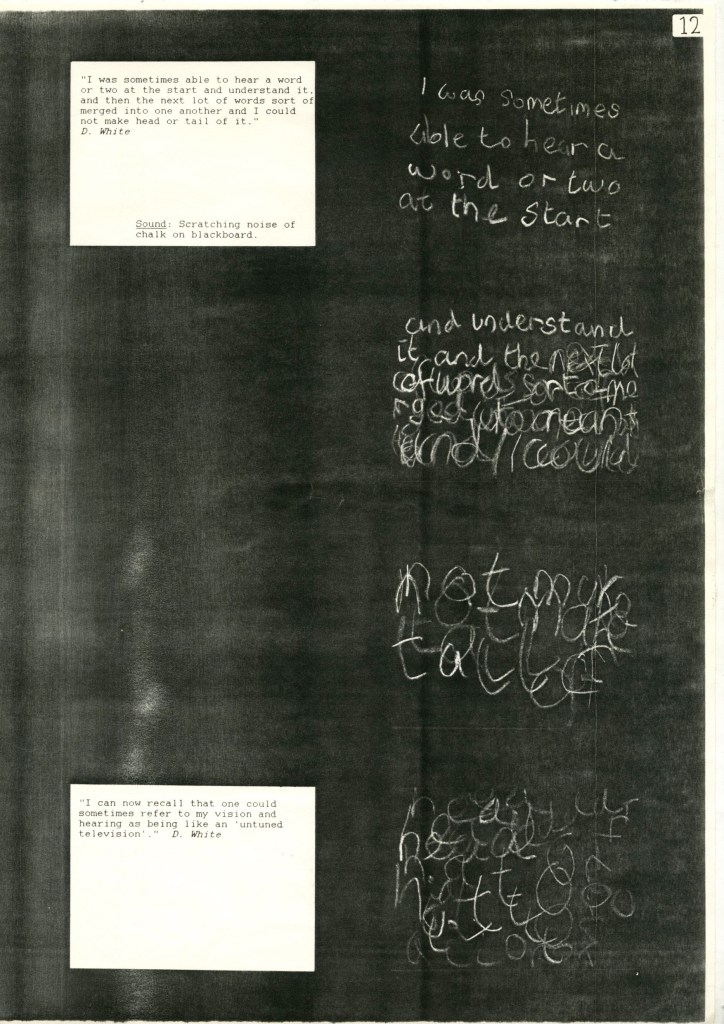 12
"I was sometimes able to hear a word
or two at the start and understand it,
and then the next lot of words sort of
merged into one another and I could
not make head or tail of it."
D. White
Sound: Scratching noise of
chalk on blackboard.
I was sometimes
able to hear a
word or two
at the start
and understand
it and the next lot
of words sort of me
rged into
and I could
not make
"I can now recall that one could
sometimes refer to my vision and
hearing as being like an 'untuned
television'." D. White